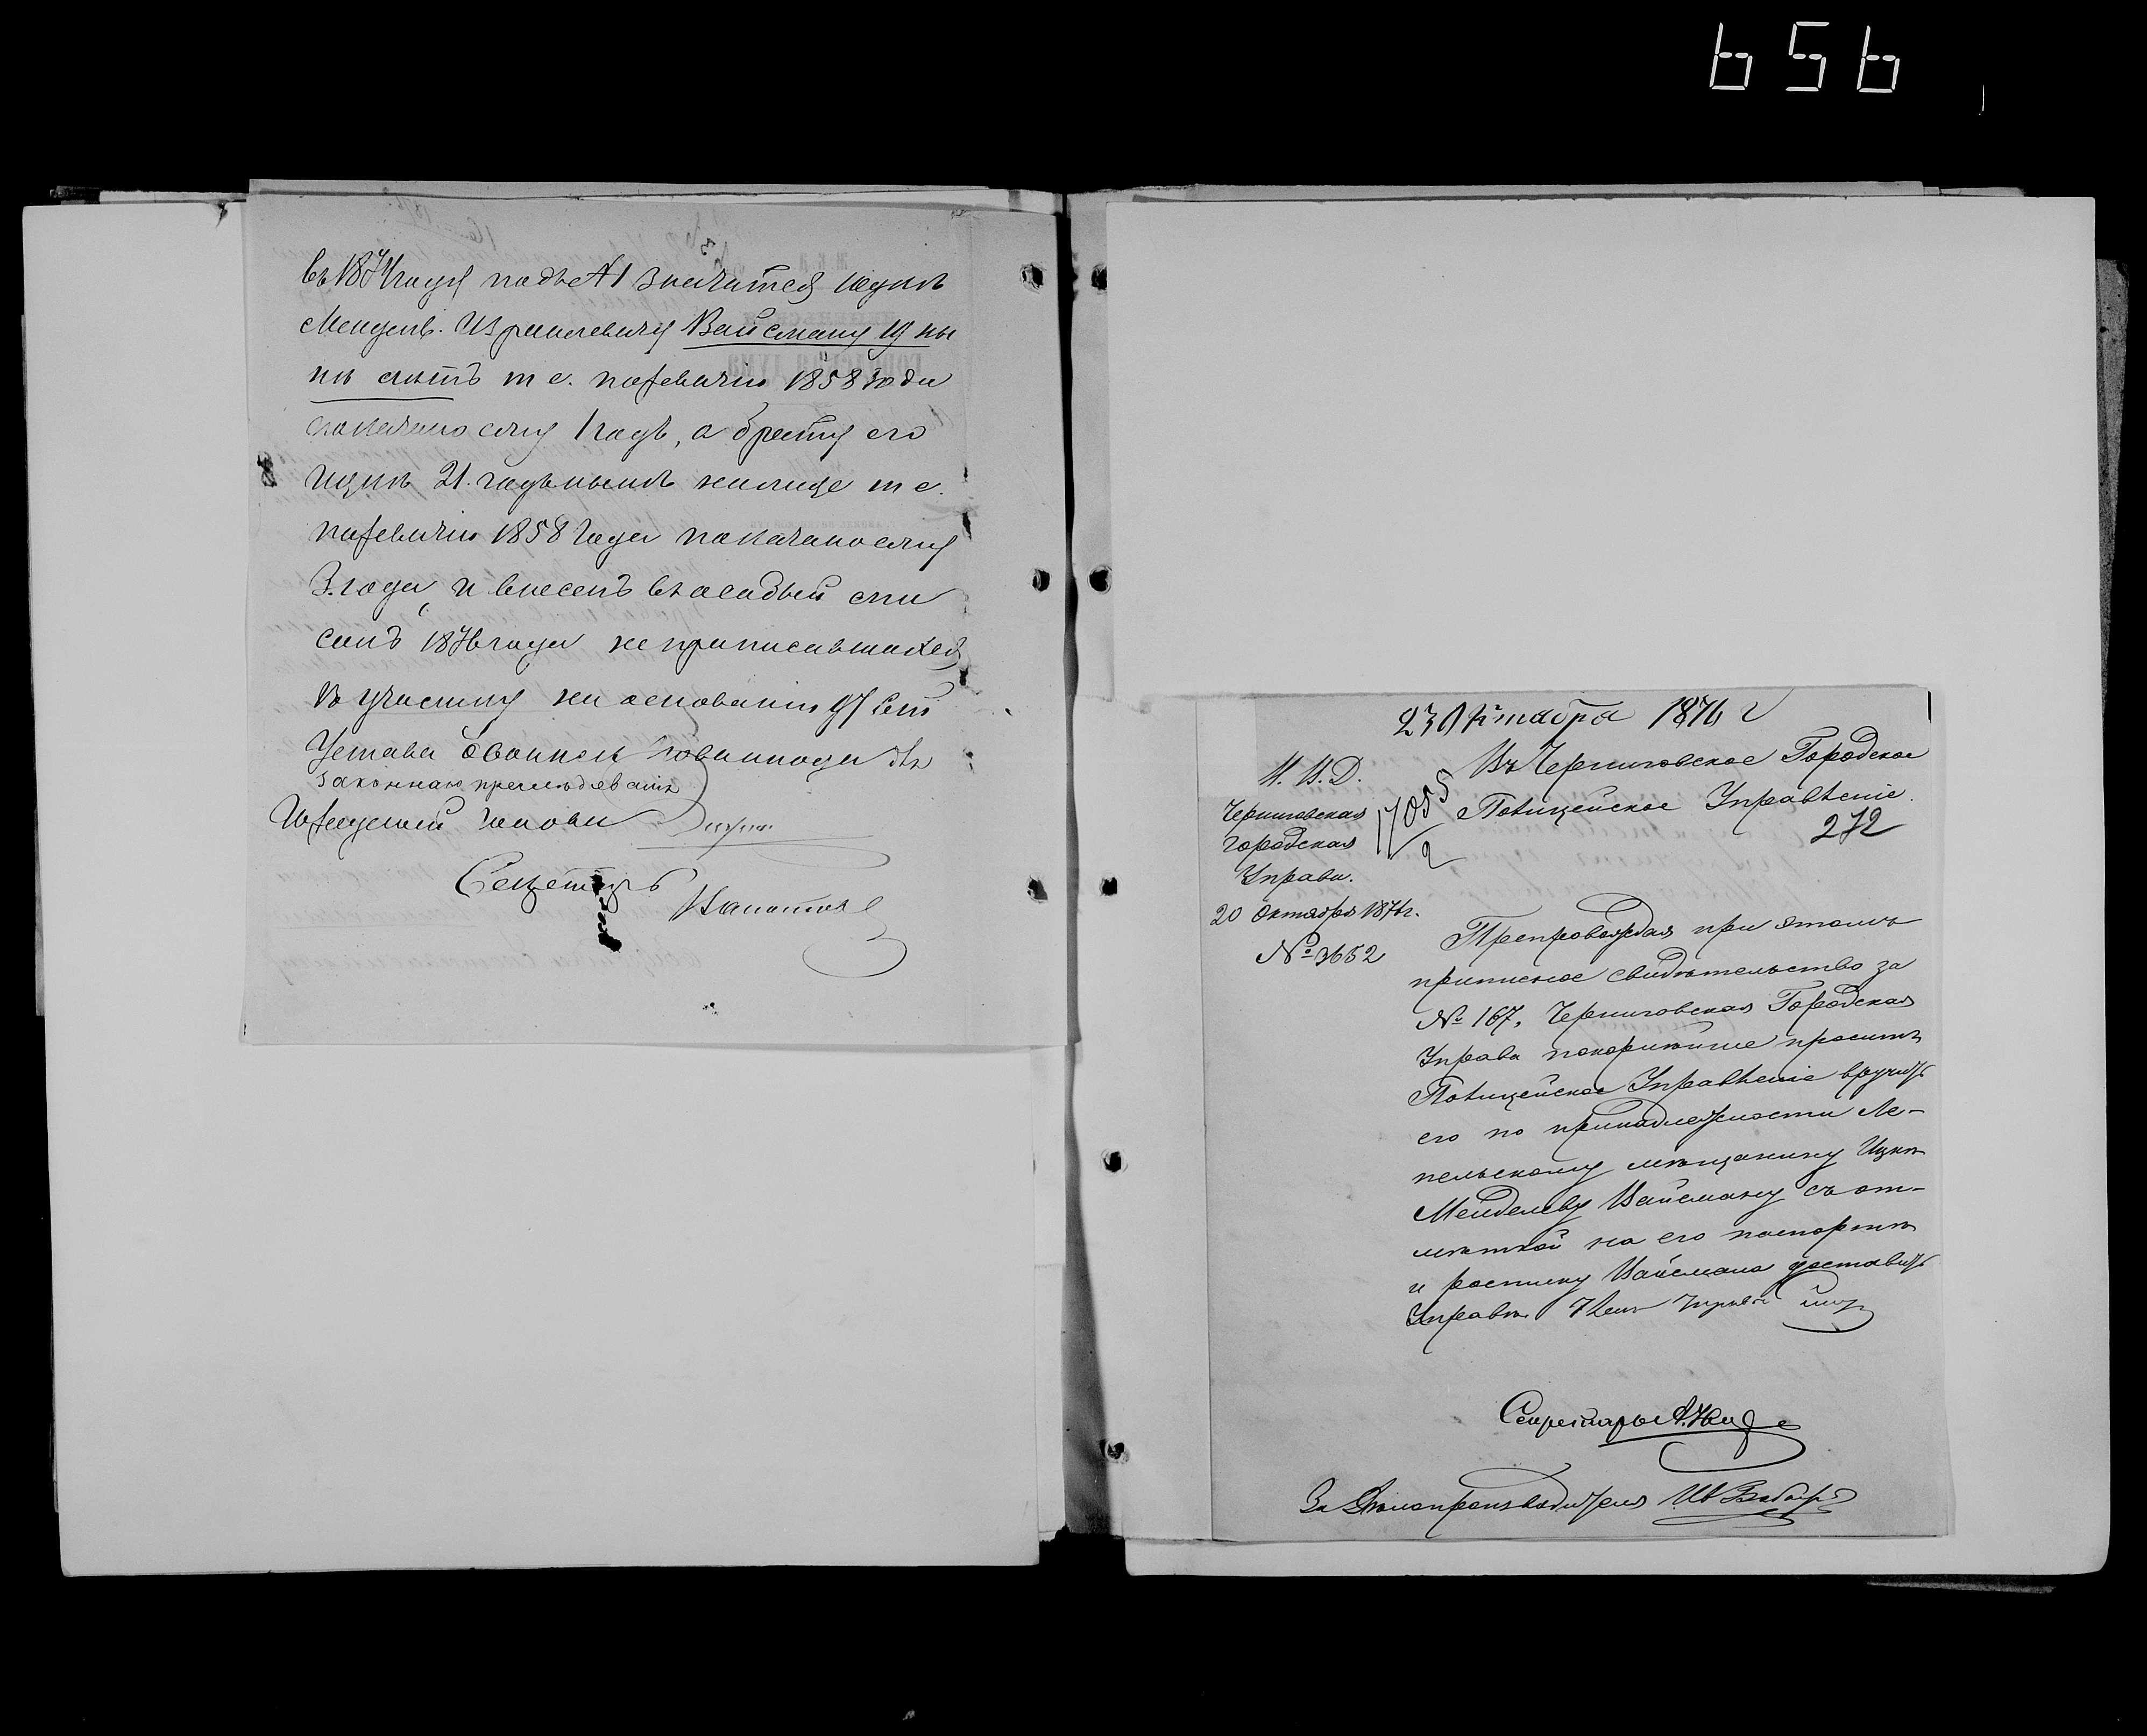 656
въ 1874 году подъ №1 значится Ицикъ
Мендель Израилевичу Вайсману 19 ны
нѣ лѣтъ т е. по ревизіи 1858 года
показано ему 1 годъ, а брату его
Ицикъ 21. годъ нынѣ
по ревизіи 1858 года показано ему
3 года, и внесенъ въ особый спи
сокъ 1876 года не приписавшихся
къ участку на основаніи 97 ст
Устава о воинской повинности для
законнаго преслѣдованія
Городской Головы
Секретарь
23 Октября 1876 г
М. В. Д.
Черниговская
Городская
Управа.
20 Октября 1876 г.
№ 3652
17055
2
Въ Черниговское Городское
Полицейское Управленіе.
272
Препровождая при этомъ
приписное свидѣтельство за
№ 167, Черниговская Городская
Управа покорнѣйше проситъ
Полицейское Управленіе вручить
его по принадлежности Ле-
пельскому мѣщанину Ицкѣ
Менделеву Вайсману съ от-
мѣткой на его паспортѣ
и росписку Вайсмана доставить
Управѣ. Членъ Управы
Секретарь
За Дѣлопроизводителя